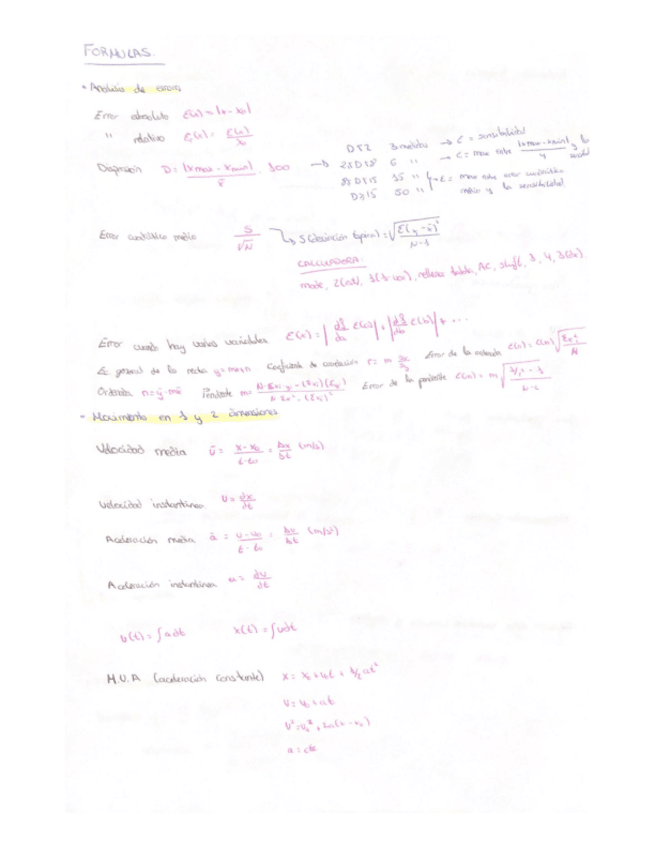 FORMULAS.
• Análisis de errores
Error absoluto ε(x) = |x - x₀|
" relativo εᵣ(x) = ε(x)/x₀
Dispersión D = |xmax - xmin|/x̄ · 100
D≤2 3 medidas → ε = sensibilidad
6 " → ε = max entre |xmax - xmin|/4 y la
15 " → ε = max entre error cuadrático
50 " medio y la sensibilidad
Error cuadrático medio S/√N → S (desviación típica) =
CALCULADORA:
mode, rellenar tabla, AC, shift, 1, 4,
Error cuando hay varias variables ε(x) = |df/da ε(a)| + |df/db ε(b)| + ...
Ec. general de la recta y = mx + n Coeficiente de correlación r = m Error de la ordenada
Ordenada n = ȳ - mx̄ Pendiente m = Error de la pendiente ε(m) = m
• Movimiento en 1 y 2 dimensiones
Velocidad media v̄ = x - x₀/t - t₀ = Δx/Δt (m/s)
Velocidad instantánea v = dx/dt
Aceleración media ā = v - v₀/t - t₀ = Δv/Δt (m/s²)
Aceleración instantánea a = dv/dt
v(t) = ∫a dt x(t) = ∫v dt
M.U.A (aceleración constante) x = x₀ + v₀t + 1/2 at²
v = v₀ + at
v² = v₀² + 2a(x - x₀)
a = cte